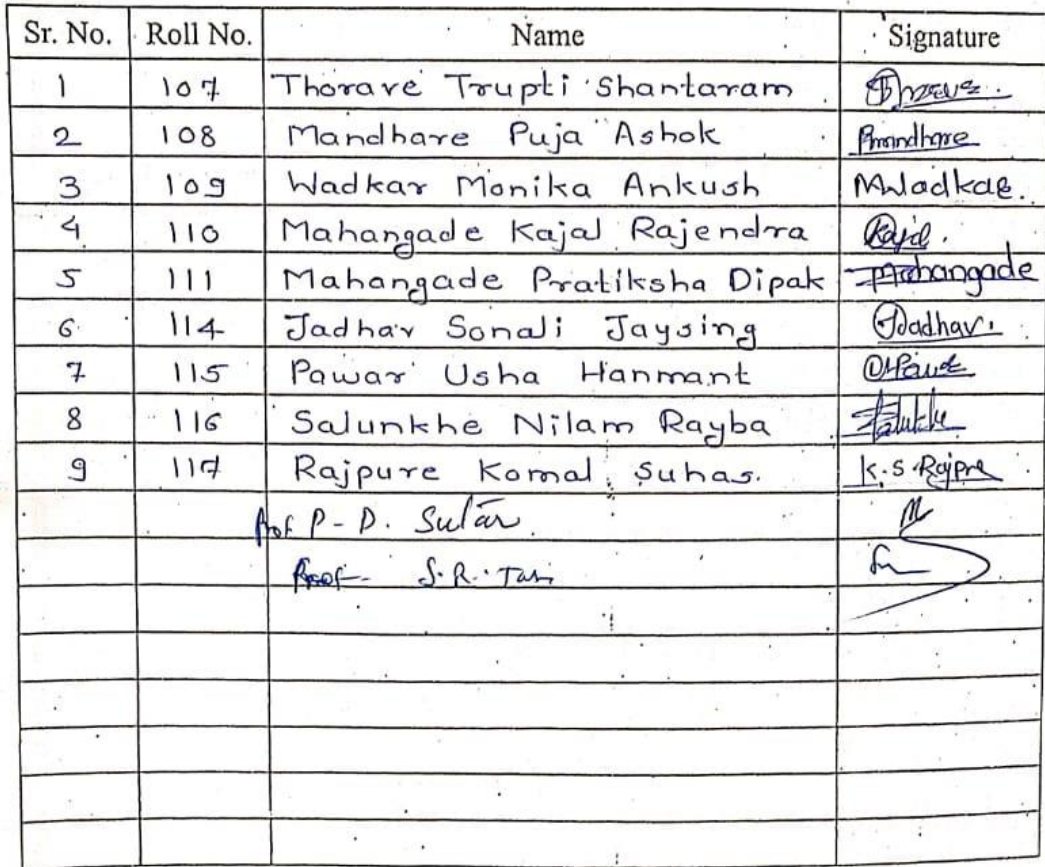 Sr. No. Roll No. Name Signature
1 107 Thorave Trupti Shantaram
2 108 Mandhare Puja Ashok Pmandhare
3 109 Wadkar Monika Ankush MWadkar.
4 110 Mahangade Kajal Rajendra Kajal.
5 111 Mahangade Pratiksha Dipak Mahangade
6 114 Jadhav Sonali Jaysing Jadhav.
7 115 Pawar Usha Hanmant
8 116 Salunkhe Nilam Rayba
9 117 Rajpure Komal Suhas. K.S.Rajpre
Prof P-D. Sutar
Prof- S.R.